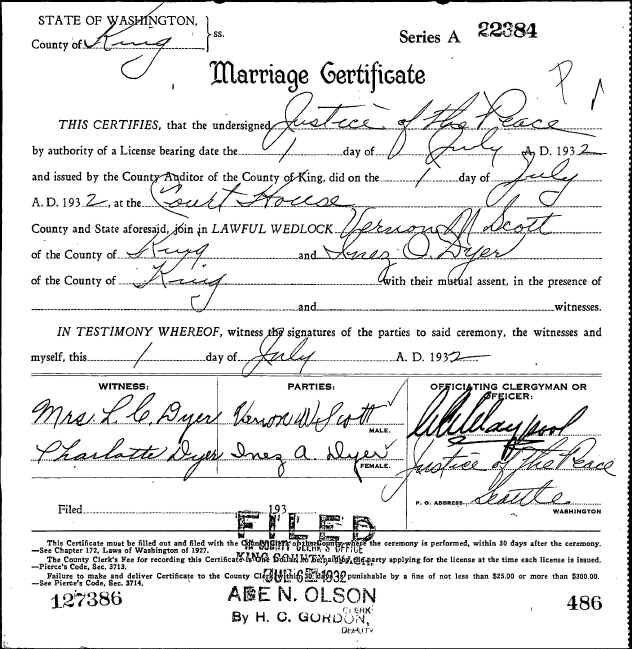 STATE OF WASHINGTON, } ss.
County of King
Series A 22384
Marriage Certificate
THIS CERTIFIES, that the undersigned Justice of the Peace
by authority of a License bearing date the 1 day of July A. D. 1932
and issued by the County Auditor of the County of King, did on the 1 day of July
A. D. 1932, at the Court House
County and State aforesaid, join in LAWFUL WEDLOCK Vernon W Scott
of the County of King and Inez O. Dyer
of the County of King with their mutual assent, in the presence of
and witnesses.
IN TESTIMONY WHEREOF, witness the signatures of the parties to said ceremony, the witnesses and
myself, this 1 day of July A. D. 1932
WITNESS: PARTIES: OFFICIATING CLERGYMAN OR OFFICER:
Mrs. L. C. Dyer Vernon W Scott MALE.
Charlotte Dyer Inez A. Dyer FEMALE. Justice of the Peace
P. O. ADDRESS Seattle WASHINGTON
Filed 193
FILED
IN COUNTY CLERK'S OFFICE
KING COUNTY, WASH.
1932
ABE N. OLSON
CLERK
By H. C. GORDON,
DEPUTY
This Certificate must be filled out and filed with the County Clerk of the County where the ceremony is performed, within 30 days after the ceremony.
—See Chapter 172, Laws of Washington of 1927.
The County Clerk's Fee for recording this Certificate is One Dollar to be paid by the party applying for the license at the time each license is issued.
—Pierce's Code, Sec. 3713.
Failure to make and deliver Certificate to the County Clerk within 30 days is punishable by a fine of not less than $25.00 or more than $300.00.
—See Pierce's Code, Sec. 3714.
127386
486